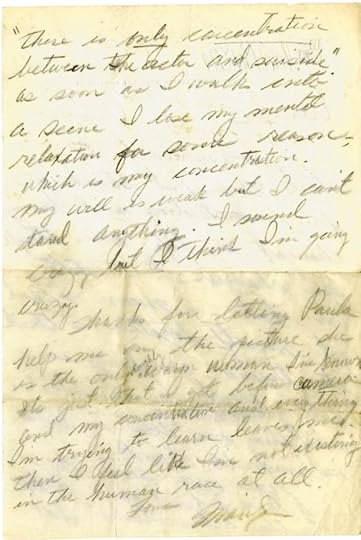 "There is only concentration
between the actor and suicide"
as soon as I walk into
a scene I lose my mental
relaxation for some reason,
which is my concentration.
My will is weak but I can't
stand anything. I sound
crazy but I think I'm going
crazy.
Thanks for letting Paula
help me on the picture she
is the only really warm woman I've known
It's just that I get before camera
and my concentration and everything
I'm trying to learn leaves me.
then I feel like I'm not existing
in the human race at all.
Love
Marilyn